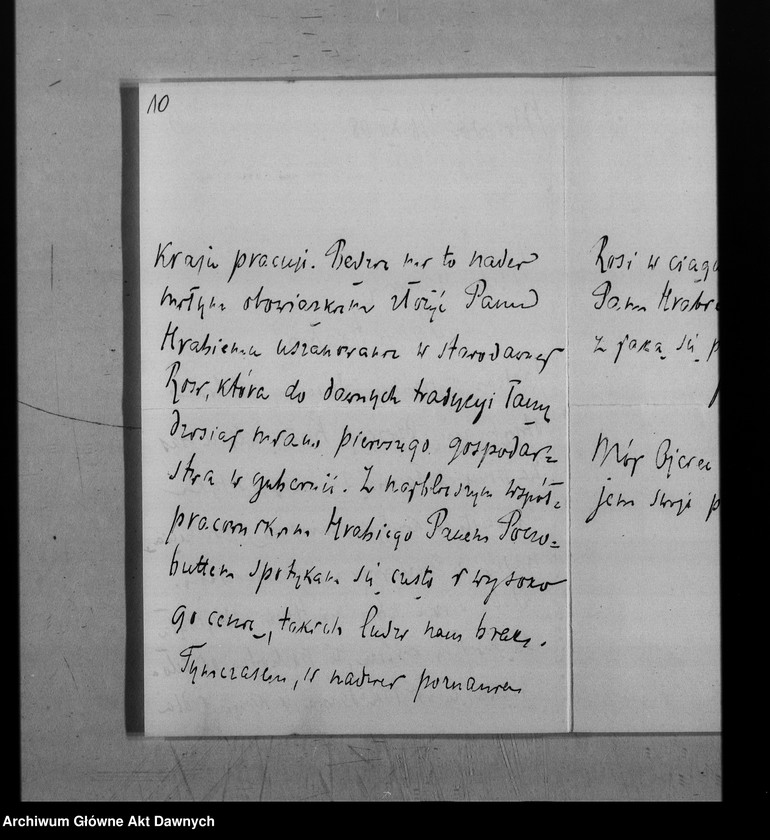 10
Kraju pracuji. Będzie mi to nader
miłym obowiązkiem złożyć Panu
Hrabiemu uszanowanie w starodawnej
Rosi, która do dawnych tradycyi łączy
dzisiaj miano pierwszego gospodar=
stwa w gubernii. Z najbliższym współ=
pracownikiem Hrabiego Panem Poczo=
buttem spotykam się często i wysoko
go cenię, takich ludzi nam brak.
Tymczasem, w nadziei poznania
Rosi w ciągu
Pana Hrabie
z jaką się p
Mój Ojciec
jem swoje p
Archiwum Główne Akt Dawnych